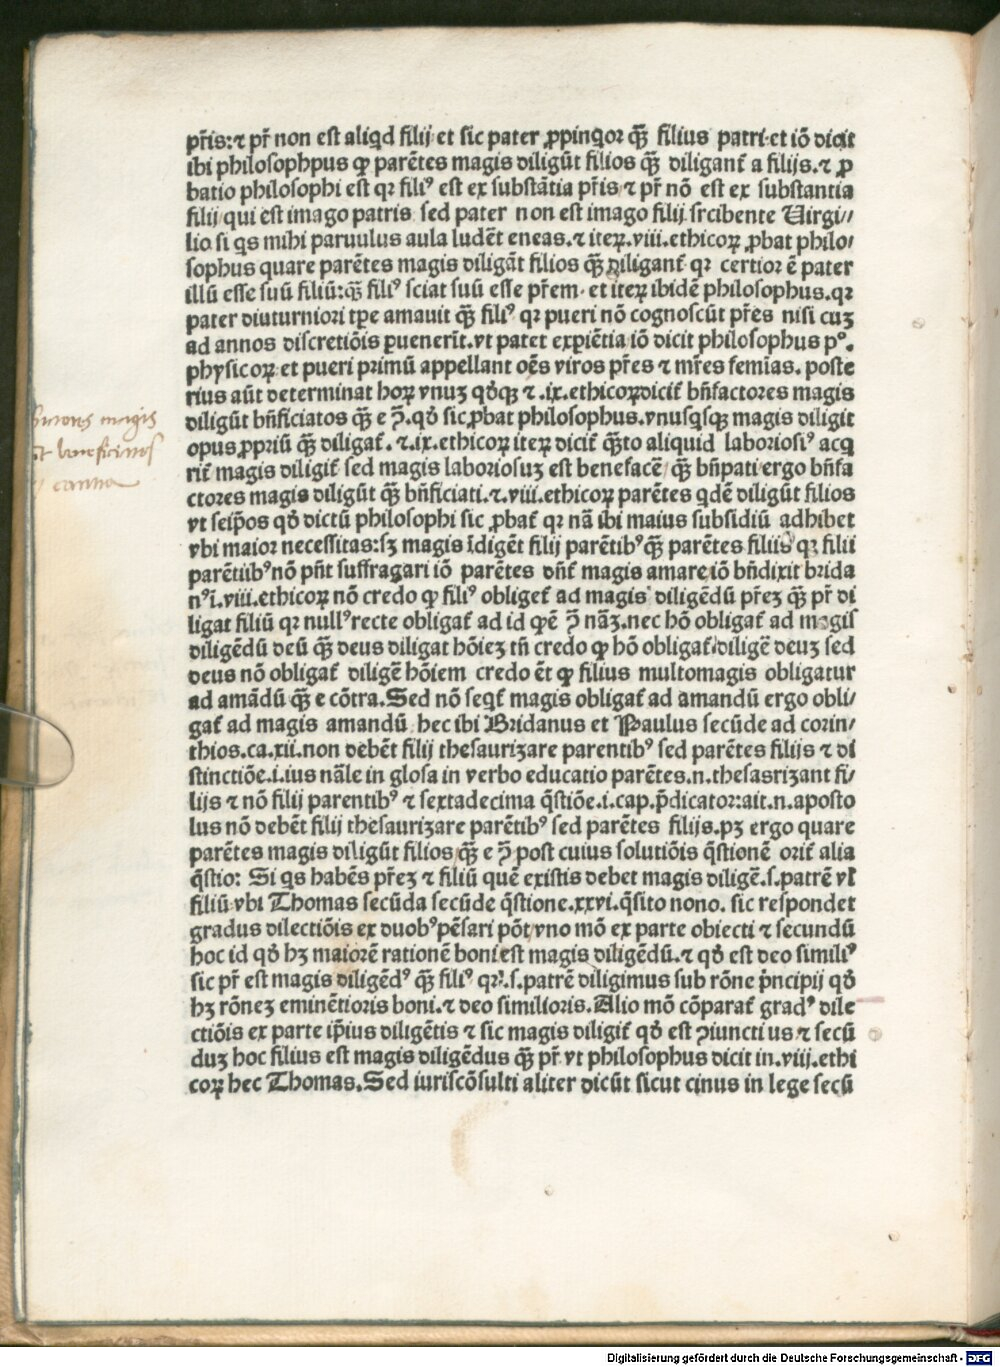 pr̄is:⁊ pr̄ non est aliqd filij et sic pater ꝓpinqor q̄ȝ filius patri et iō dicit
ibi philosophpus ꝙ parēt̄es magis diligūt filios q̄ȝ diligant̄ a filijs.⁊ ꝓ
batio philosophi est qꝛ filiꝰ est ex substātia pr̄is ⁊ pr̄ nō est ex substantia
filij qui est imago patris sed pater non est imago filij srcibente Virgi//
lio si qs mihi paruulus aula ludēt eneas.⁊ iteꝝ.viii.ethicoꝝ ꝓbat philo/
sophus quare parētes magis diligāt filios q̄ȝ diligant̄ qꝛ certior ē pater
illū esse suū filiū:q̄ȝ filiꝰ sciat suū esse pr̄em et iteꝝ ibidē philosophus.qꝛ
pater diuturniori tp̄e amauit q̄ȝ filiꝰ qꝛ pueri nō cognoscūt pr̄es nisi cuȝ
ad annos discretiōis ꝑuenerīt.vt patet exꝑiētia iō dicit philosophus pº.
physicoꝝ et pueri primū appellant oēs viros pr̄es ⁊ mr̄es femīas. poste
rius aūt determinat hoꝝ vnuȝ qḋqȝ ⁊ .ix.ethicoꝝ dicit̄ bn̄factores magis
diligūt bn̄ficiatos q̄ȝ e ꝯ̄.qḋ sic ꝓbat philosophus.vnusqsqȝ magis diligit
opus ꝓpriū q̄ȝ diligat̄.⁊.ix.ethicoꝝ iteꝝ dicit̄ q̄ȝto aliquid laboriosiꝰ acq
rit̄ magis diligit̄ sed magis laboriosuȝ est benefacē q̄ȝ bn̄pati ergo bn̄fa
ctores magis diligūt q̄ȝ bn̄ficiati.⁊.viii.ethicoꝝ parētes qdē diligūt filios
vt seip̄os qḋ dictū philosophi sic ꝓbat̄ qꝛ nā ibi maius subsidiū adhibet
vbi maior necessitas:sȝ magis īdigēt filij parētibꝰ q̄ȝ parētes filiis qꝛ filii
parētiibꝰ nō pn̄t suffragari iō parētes dn̄t magis amare iō bn̄dixit brida
nꝰ ī.viii.ethicoꝝ nō credo ꝙ filiꝰ obliget̄ ad magis diligēdū pr̄eȝ q̄ȝ pr̄ di
ligat filiū qꝛ nullꝰ recte obligat̄ ad id qḋ ē ꝯ̄ nāȝ.nec hō obligat̄ ad magis
diligēdū deū q̄ȝ deus diligat hōieȝ tn̄ credo ꝙ hō obligat̄ diligē deuȝ sed
deus nō obligat̄ diligē hōiem credo ēt ꝙ filius multomagis obligatur
ad amādū q̄ȝ e cōtra.Sed nō seqt̄ magis obligat̄ ad amandū ergo obli/
gat̄ ad magis amandū hec ibi Bridanus et Paulus secūde ad corin/
thios.ca.xii.non debēt filij thesaurizare parentibꝰ sed parētes filijs ⁊ di
stinctiōe.i.ius nāle in glosa in verbo educatio parētes.n.thesasrizant fi/
lijs ⁊ nō filij parentibꝰ ⁊ sextadecima q̄stiōe.i.cap.p̄dicator:ait.n.aposto
lus nō debēt filij thesaurizare parētibꝰ sed parētes filijs.pȝ ergo quare
parētes magis diligūt filios q̄ȝ e ꝯ̄ post cuius solutiōis q̄stionē orit̄ alia
q̄stio: Si qs habēs pr̄eȝ ⁊ filiū quē existis debet magis diligē.s.patrē vl
filiū vbi Thomas secūda secūde q̄stione.xxvi.q̄sito nono. sic respondet
gradus dilectiōis ex duobꝰ pēsari pōt vno mō ex parte obiecti ⁊ secundū
hoc id qḋ hȝ maiorē rationē boni est magis diligēdū.⁊ qḋ est deo similiꝰ
sic pr̄ est magis diligēdꝰ q̄ȝ filiꝰ qꝛ.s.patrē diligimus sub rōne pͥncipij qḋ
hȝ rōneȝ eminētioris boni.⁊ deo similioris.Alio mō cōparat̄ gradꝰ dile
ctiōis ex parte ip̄ius diligētis ⁊ sic magis diligit̄ qḋ est ꝯiuncti us ⁊ secū
duȝ hoc filius est magis diligēdus q̄ȝ pr̄ vt philosophus dicit in.viij.ethi
coꝝ hec Thomas.Sed iuriscōsulti aliter dicūt sicut cinus in lege secū
magis
beneficiatos
Digitalisierung gefördert durch die Deutsche Forschungsgemeinschaft - DFG